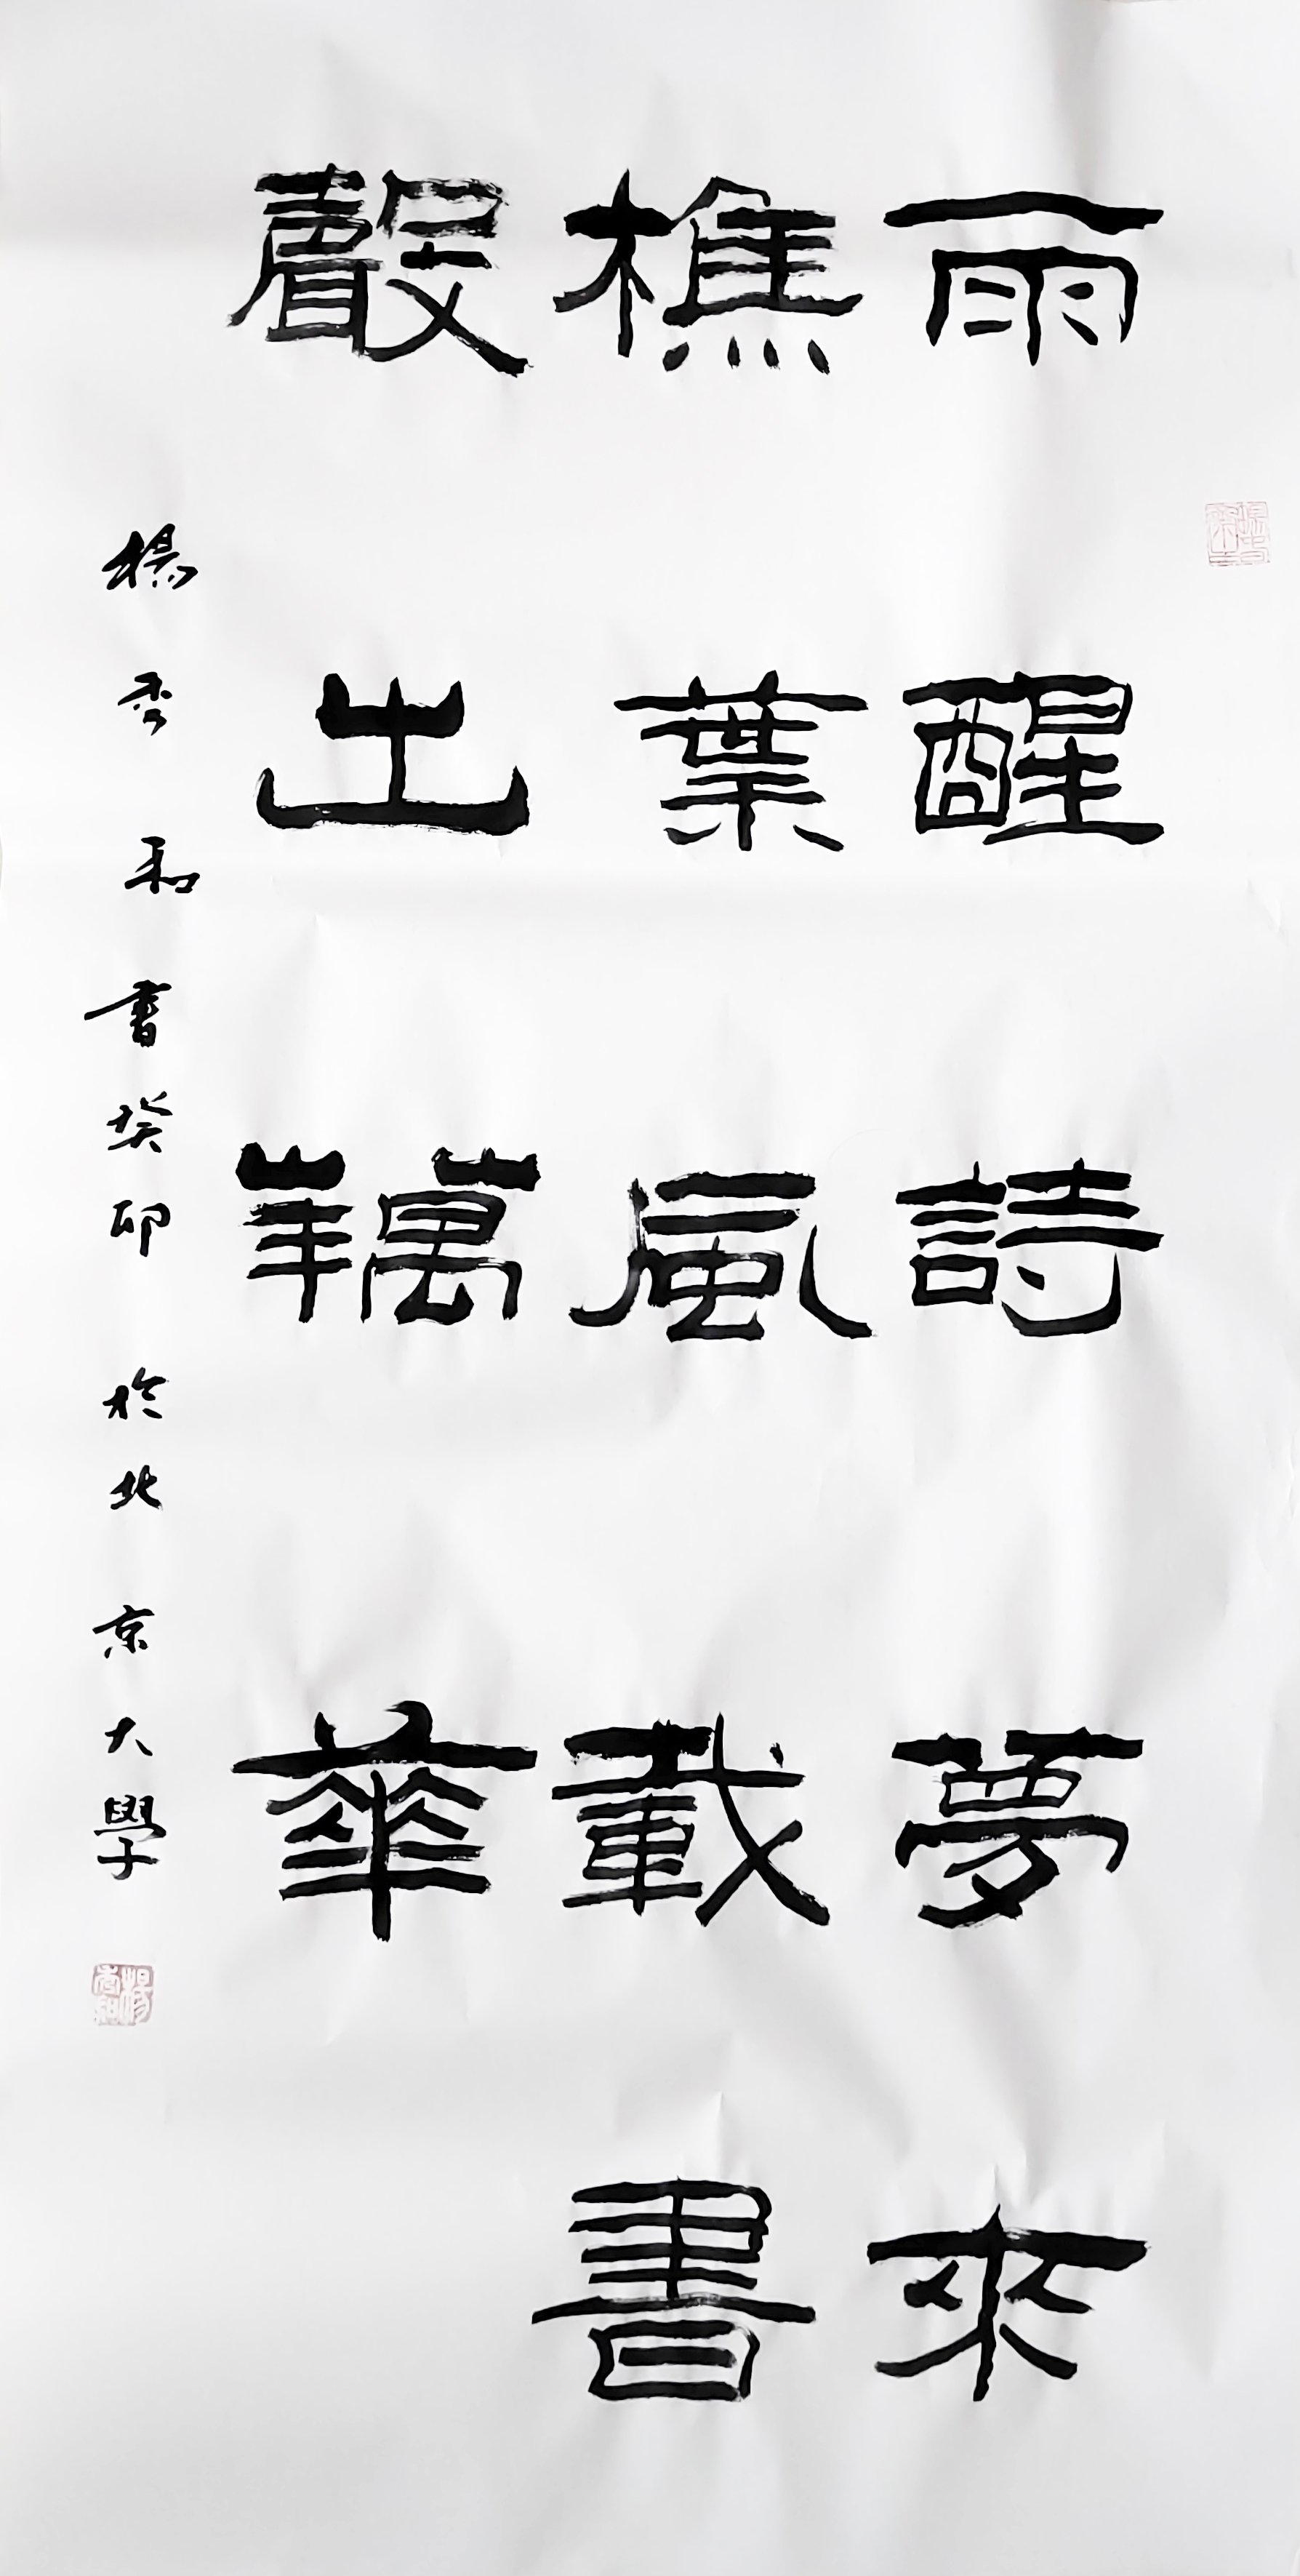 雨醒詩夢來
樵葉風載書
聲出藕華
楊秀和書癸卯於北京大學